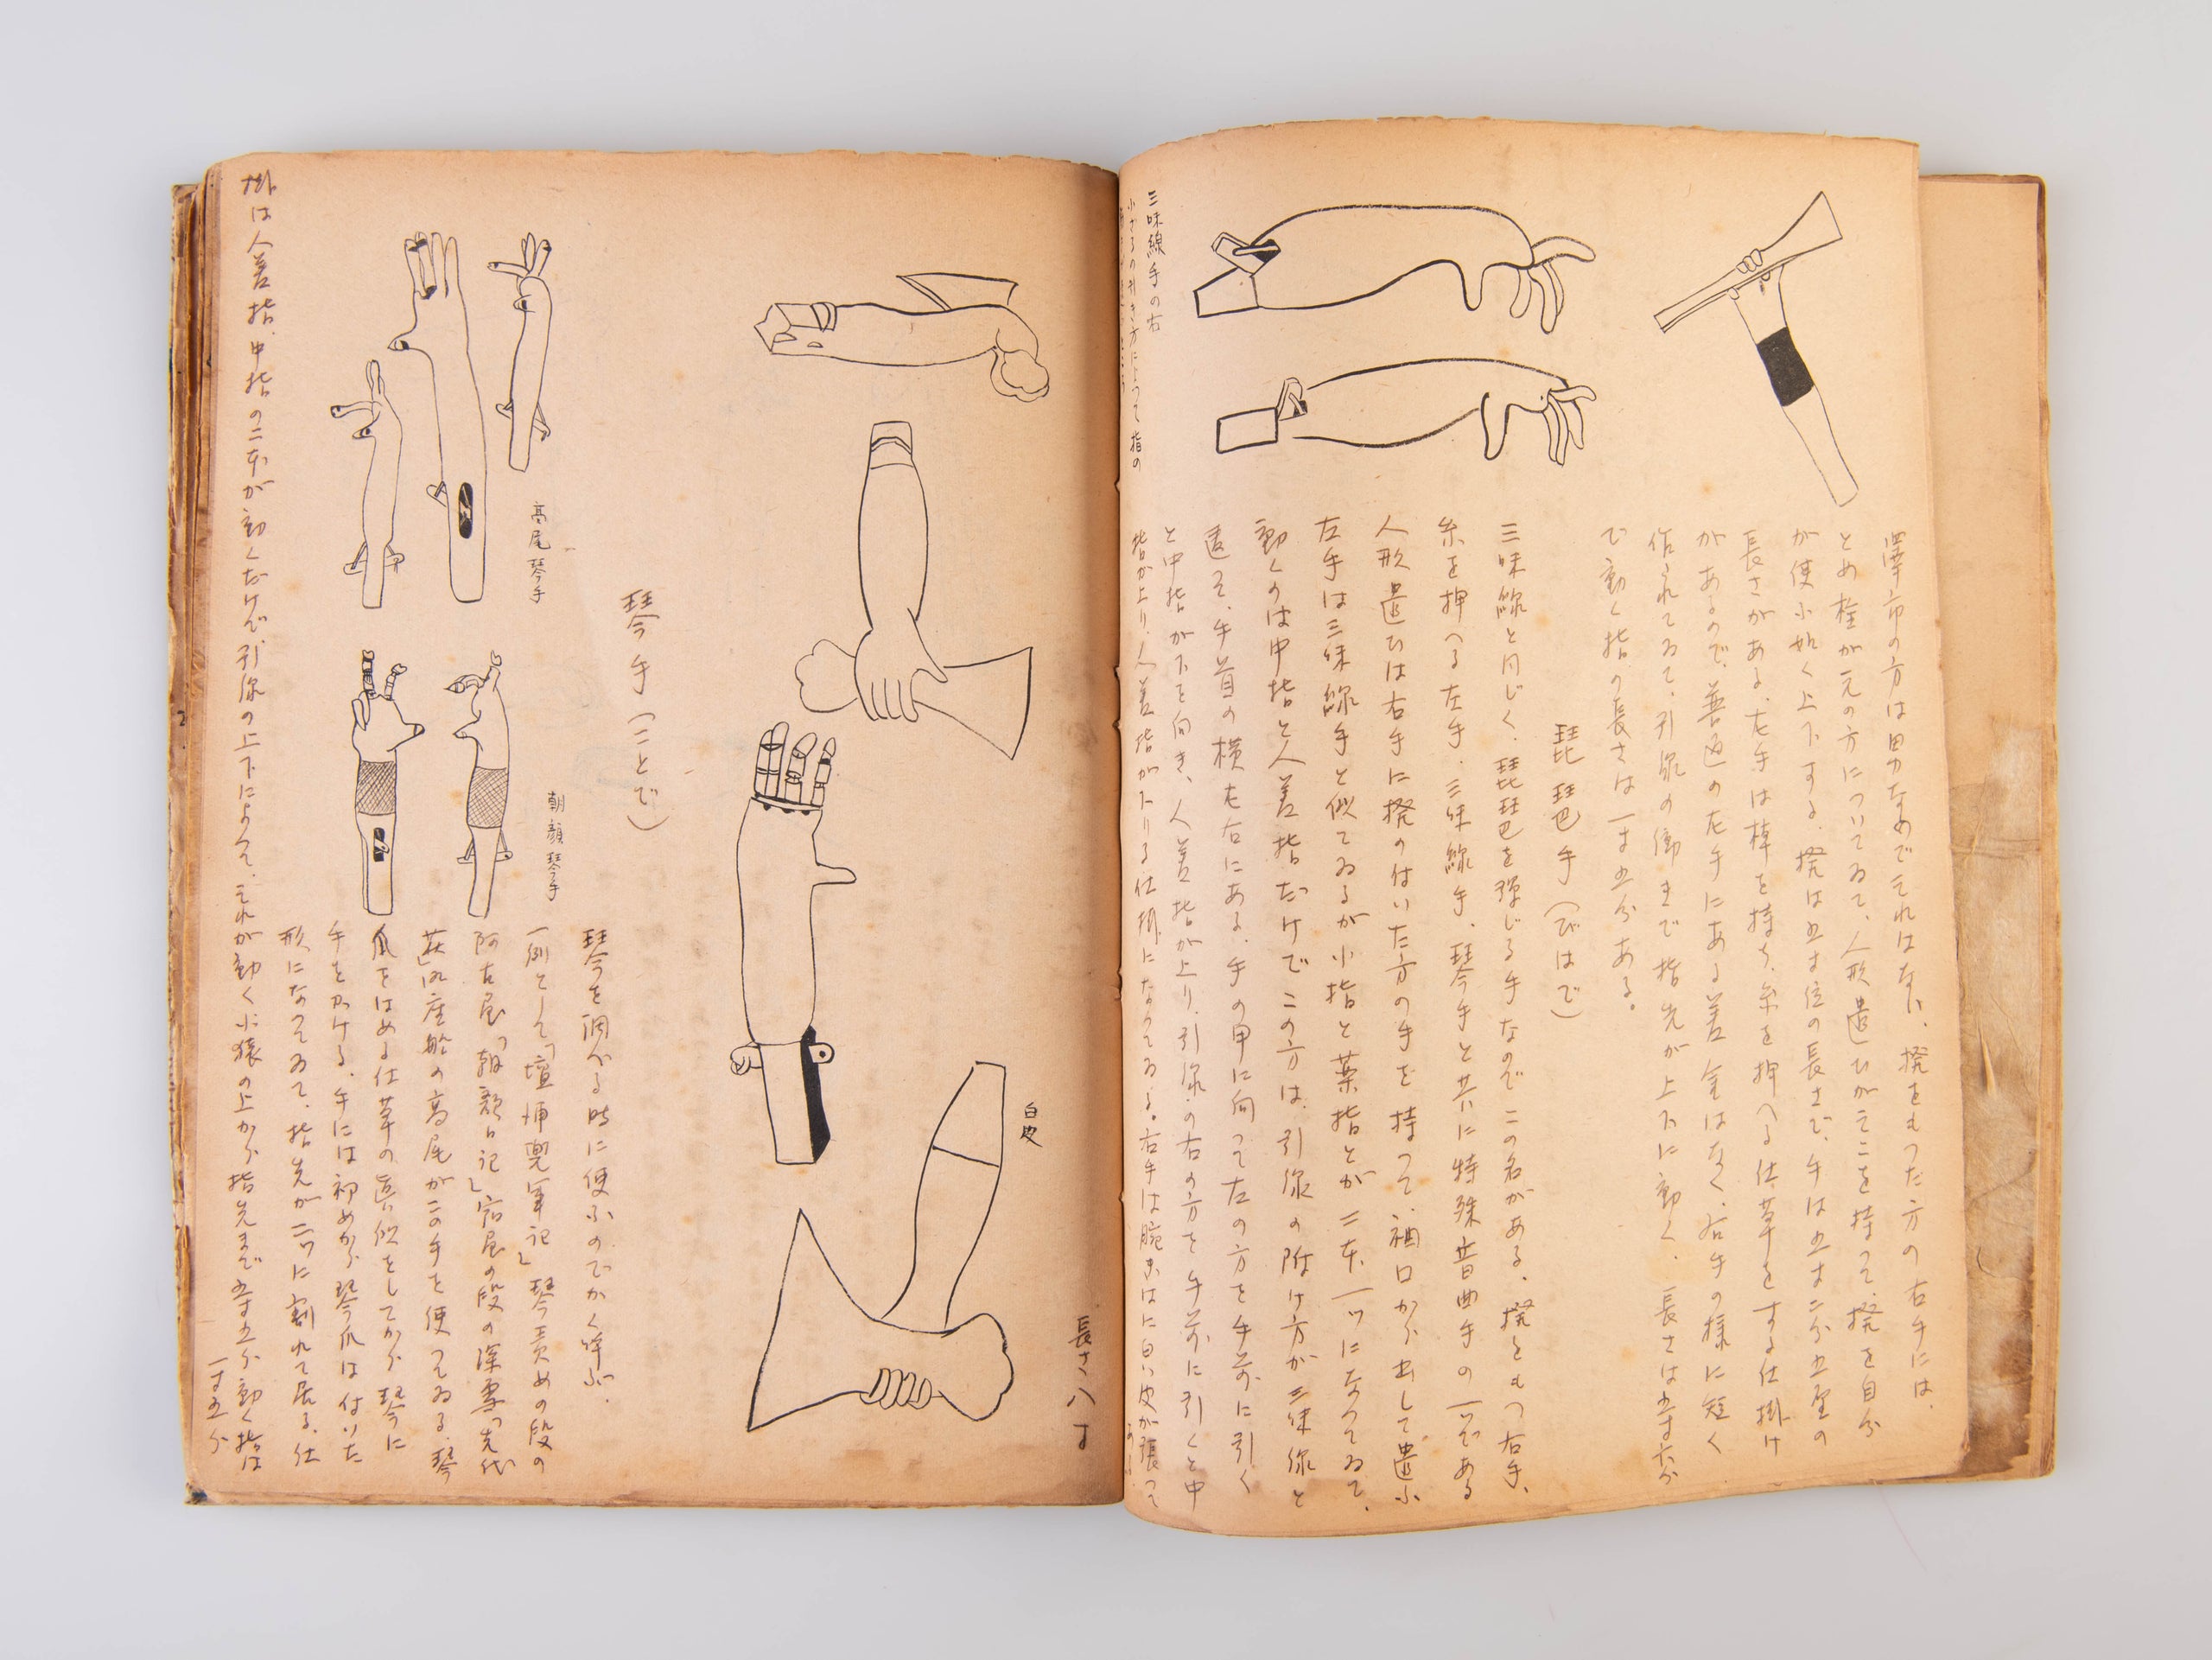 澤市の方は男なめでこれはない、撥をもつた方の右手には、
とめ栓が元の方についてゐて、人形遣ひがそこを持って、撥を自分
が使ふ如く上下する。撥は五寸位の長さで、手は五寸二分五厘の
長さがある。左手は棹を持ち、糸を押へる仕草をする仕掛け
があるので、普通の左手にある差金はなく、右手の様に短く
作られてゐて、引線の働きで指先が上下に動く、長さは五寸六分
で動く指の長さは一寸五分ある。
琵琶手(びはで)
三味線と同じく、琵琶を弾じる手なのでこの名がある、撥をもつ右手、
糸を押へる左手、三味線手、琴手と共に特殊音曲手の一つである
人形遣ひは右手に撥の付いた方の手を持って、袖口から出して遣ふ
左手は三味線手と似てゐるが小指と薬指とが二本一ツになってゐて、
動くのは中指と人差指だけでこの方は、引線の附け方が三味線と
違って、手首の横左右にある、手の甲に向って左の方を手前に引く
と中指が下を向き、人差指が上り、引線の右の方を手前に引くと中
指が上り、人差指が下りる仕掛になってゐる。右手は腕まはに白い皮が張って
三味線手の右
小さるの引き方によって指の
長さ八寸
白皮
琴手(ことで)
琴を調べる時に使ふのでかく呼ぶ。
一例として「壇浦兜軍記」琴責めの段の
阿古屋「朝顔日記」宿屋の段の深雪「先代
萩」御座船の高尾がこの手を使ってゐる。琴
爪をはめる仕草の真似をしてから琴に
手をかける、手には初めから琴爪は付いた
形になってゐて、指先が二ツに割れて居る、仕
掛は人差指、中指の二本が動くだけで、引線の上下によって、これが動く小猿の上から指先まで五寸五分動く指は
一寸五分
高尾琴手
朝顔琴手